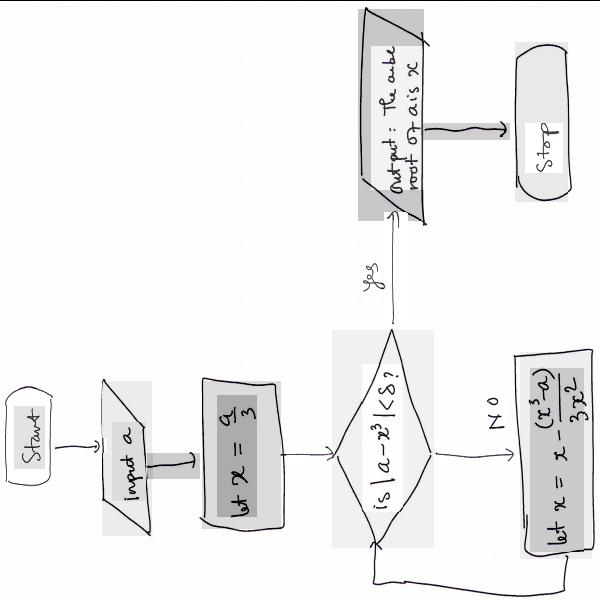 Start
input a
let x = a/3
is |a-x³|<δ?
Yes
Output: The cube
root of a is x
Stop
NO
let x = x - (x³-a)/3x²